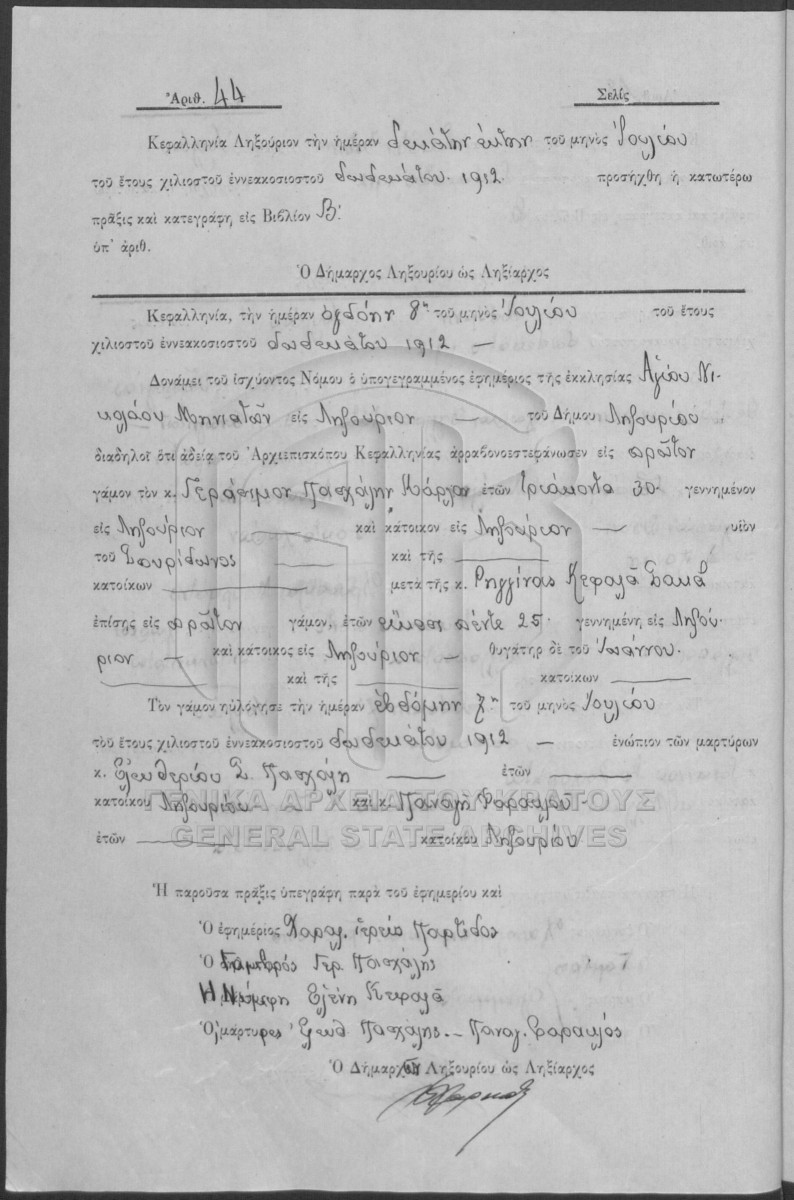 Ἀριθ. 44
Σελὶς
Κεφαλληνία Ληξούριον τὴν ἡμέραν δεκάτην ἕκτην τοῦ μηνὸς Ἰουλίου
τοῦ ἔτους χιλιοστοῦ ἐννεακοσιοστοῦ δωδεκάτου 1912 προσήχθη ἡ κατωτέρω
πρᾶξις καὶ κατεγράφη εἰς Βιβλίον Β'
ὑπ' ἀριθ.
Ὁ Δήμαρχος Ληξουρίου ὡς Ληξίαρχος
Κεφαλληνία, τὴν ἡμέραν ὀγδόην 8ην τοῦ μηνὸς Ἰουλίου τοῦ ἔτους
χιλιοστοῦ ἐννεακοσιοστοῦ δωδεκάτου 1912 —
Δυνάμει τοῦ ἰσχύοντος Νόμου ὁ ὑπογεγραμμένος ἐφημέριος τῆς ἐκκλησίας Ἁγίου Νι-
κολάου Μηνιατῶν εἰς Ληξούριον — τοῦ Δήμου Ληξουρίου
διαδηλοῖ ὅτι ἀδείᾳ τοῦ Ἀρχιεπισκόπου Κεφαλληνίας ἀρραβονοεστεφάνωσεν εἰς πρῶτον
γάμον τὸν κ. Γεράσιμον Πασχάλην ἐτῶν τριάκοντα 30 γεννημένον
εἰς Ληξούριον — καὶ κάτοικον εἰς Ληξούριον — υἱὸν
τοῦ Σπυρίδωνος — καὶ τῆς —
κατοίκων — μετὰ τῆς κ. Ρηγγίνας Κεφαλᾶ
ἐπίσης εἰς πρῶτον γάμον, ἐτῶν εἴκοσι πέντε 25 γεννημένη εἰς Ληξού-
ριον — καὶ κάτοικος εἰς Ληξούριον — θυγάτηρ δὲ τοῦ Ἰωάννου
— καὶ τῆς — κατοίκων —
Τὸν γάμον ηὐλόγησε τὴν ἡμέραν ἑβδόμην 7ην τοῦ μηνὸς Ἰουλίου
τοῦ ἔτους χιλιοστοῦ ἐννεακοσιοστοῦ δωδεκάτου 1912 — ἐνώπιον τῶν μαρτύρων
κ. Ἐλευθερίου Σ. Πασχάλη — ἐτῶν —
κατοίκου Ληξουρίου — καὶ κ. Παναγῆ Φαρακλοῦ
ΓΕΝΙΚΑ ΑΡΧΕΙΑ ΤΟΥ ΚΡΑΤΟΥΣ
GENERAL STATE ARCHIVES
ἐτῶν — κατοίκου Ληξουρίου
Ἡ παροῦσα πρᾶξις ὑπεγράφη παρὰ τοῦ ἐφημερίου καὶ
Ὁ ἐφημέριος Χαραλ. ἱερεὺς
Ὁ Γαμβρός Γερ. Πασχάλης
Ἡ Νύμφη Ἑλένη Κεφαλᾶ
Οἱ μάρτυρες Ἐλευθ. Πασχάλης — Παναγ. Φαρακλός
Ὁ Δήμαρχος Ληξουρίου ὡς Ληξίαρχος